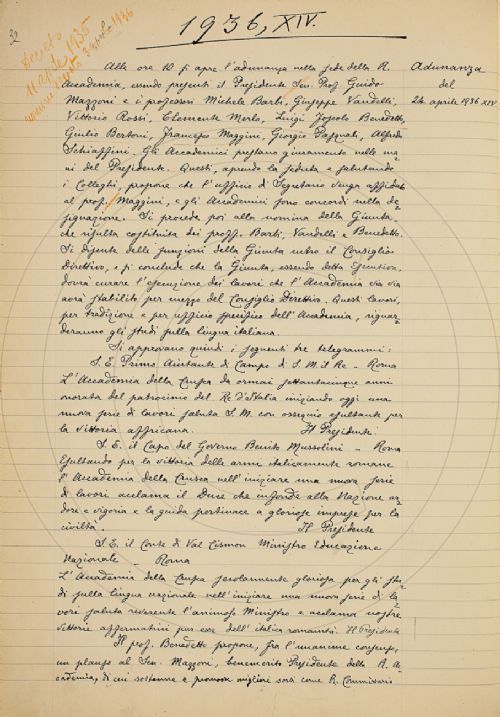 32
Decreto
11 aprile 1935
1936, XIV.
Adunanza
del
24 aprile 1936 XIV
Alle ore 10 si apre l'adunanza nella sede della R.
Accademia, essendo presenti il Presidente Sen. Prof. Guido
Mazzoni e i professori Michele Barbi, Giuseppe Vandelli,
Vittorio Rossi, Clemente Merlo, Luigi Foscolo Benedetto,
Giulio Bertoni, Francesco Maggini, Giorgio Pasquali, Alfredo
Schiaffini. Gli Accademici prestano giuramento nelle ma-
ni del Presidente. Questi, aprendo la seduta e salutando
i Colleghi, propone che l'ufficio di Segretario venga affidato
al prof. Maggini, e gli Accademici sono concordi nella de-
signazione. Si procede poi alla nomina della Giunta,
che risulta costituita dei proff. Barbi, Vandelli e Benedetto.
Si discute delle funzioni della Giunta entro il Consiglio
Direttivo, e si conclude che la Giunta, essendo detta Esecutiva,
dovrà curare l'esecuzione dei lavori che l'Accademia via via
avrà stabilito per mezzo del Consiglio Direttivo. Questi lavori,
per tradizione e per ufficio specifico dell'Accademia, riguar-
deranno gli studi sulla lingua italiana.
Si approvano quindi i seguenti tre telegrammi:
S. E. Primo Aiutante di Campo di S. M. il Re - Roma
L'Accademia della Crusca da ormai settantacinque anni
onorata del patrocinio del Re d'Italia iniziando oggi una
nuova serie di lavori saluta S. M. con ossequio esultante per
la vittoria africana. Il Presidente
S. E. il Capo del Governo Benito Mussolini - Roma
Esultando per la vittoria delle armi italicamente romane
l'Accademia della Crusca nell'iniziare una nuova serie
di lavori acclama il Duce che infonde alla Nazione ar-
dore e vigoria e la guida pertinace a gloriose imprese per la
civiltà. Il Presidente
S. E. il Conte di Val Cismon Ministro Educazione
Nazionale - Roma
L'Accademia della Crusca secolarmente gloriosa per gli stu-
di sulla lingua nazionale nell'iniziare una nuova serie di la-
vori saluta reverente l'animoso Ministro e acclama nostre
vittorie affermatrici pur esse dell'italica romanità. Il Presidente
Il prof. Benedetto propone, fra l'unanime consenso,
un plauso al Sen. Mazzoni, benemerito Presidente della R. A-
ccademia, di cui sostenne e promosse migliori sorti come R. Commissario